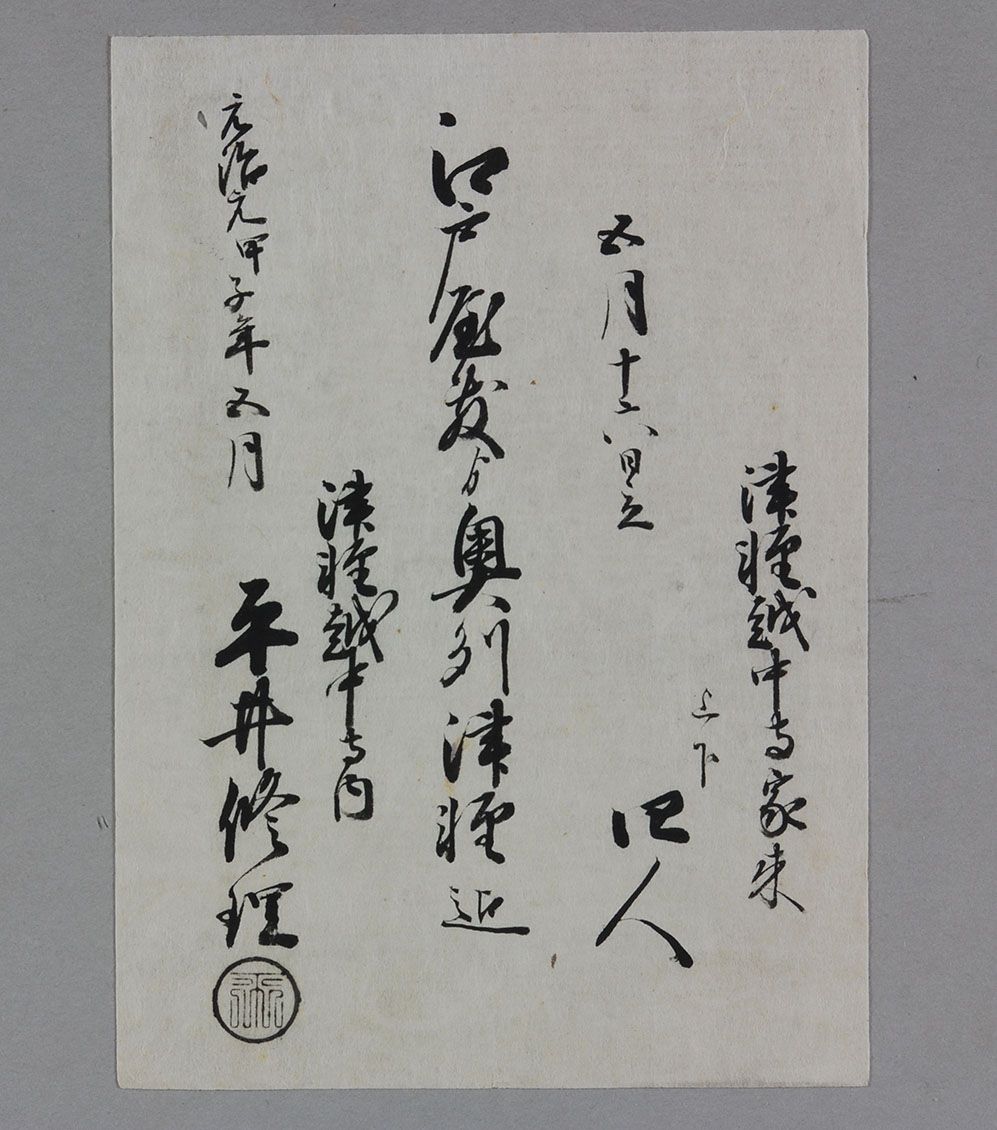 津軽越中守家来
上下
四人
五月十六日立
江戸屋敷ゟ奥州津軽迄
津軽越中守内
元治元甲子年五月
平井修理